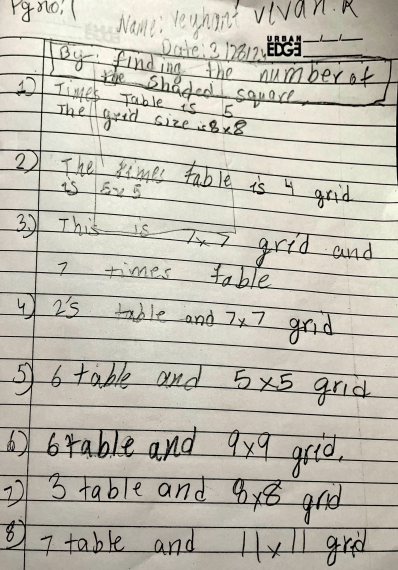 Pg no: 1
Name: Veyhant Vivan.R
URBAN
EDGE
Date: 3/28/2
By: finding the number of
the shaded square.
1) Times Table is 5
The grid size is 8x8
2) The times table is 4 grid
is 5x5
3) This is 7x7 grid and
7 times table
4) 2's table and 7x7 grid
5) 6 table and 5x5 grid
6) 6 table and 9x9 grid.
7) 3 table and 8x8 grid
8) 7 table and 11x11 grid